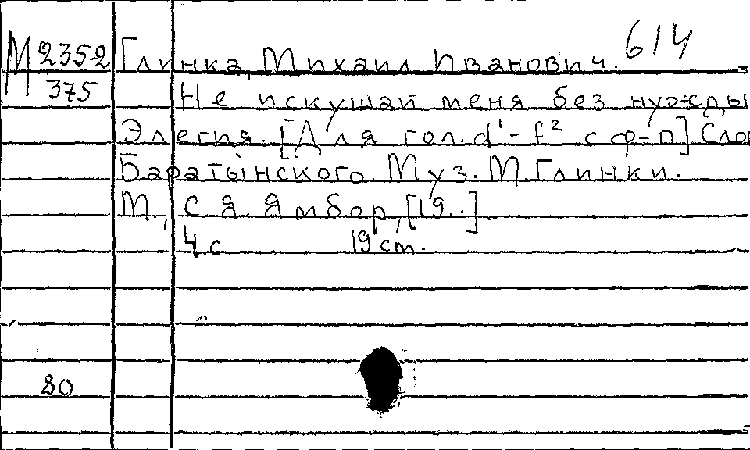 М 2352 Глинка, Михаил Иванович. 614
375 Не искушай меня без нужды
Элегия. [Для гол. d¹-f² с ф-п] Слов
Баратынского. Муз. М. Глинки.
М., С. Я. Ямбор, [19..].
4 с 19 ст.
80